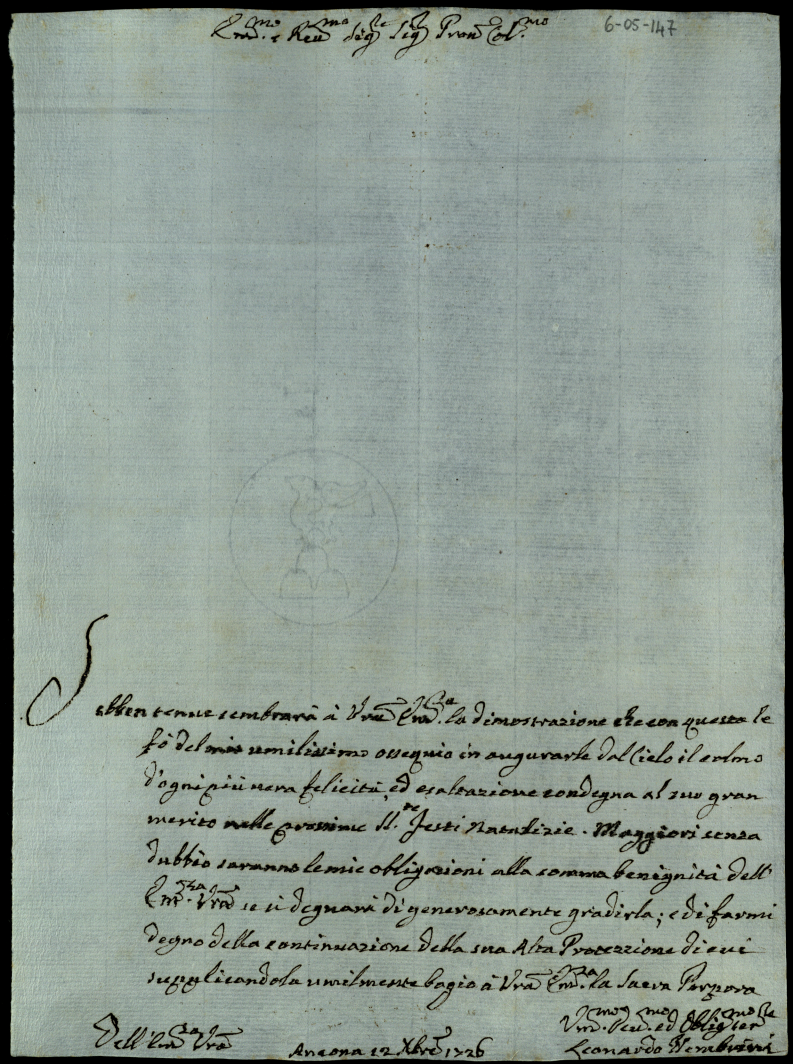 Em.mo e Reu.mo Sig.re Sig.r Pron Col.mo
6-05-147
Sebben tenue sembrarà à Vra Em.za la dimostrazione che con questa le
fò del mio umilissimo ossequio in augurarle dal Cielo il colmo
d'ogni più vera felicità, ed esaltazione condegna al suo gran
merito nelle prossime SS.te Feste Natalizie. Maggiori senza
dubbio saranno le mie obligazioni alla somma benignità dell'
Em.za Vra se si degnarà di generosamente gradirla; e di farmi
degno della continuazione della sua Alta Protezzione di cui
supplicandola umilmente bagio à Vra Em.za la Sacra Porpora
Dell'Em.za Vra
Ancona 12 Xbre 1726
Um.mo Deu.mo ed Oblig.mo Ser.re
Leonardo